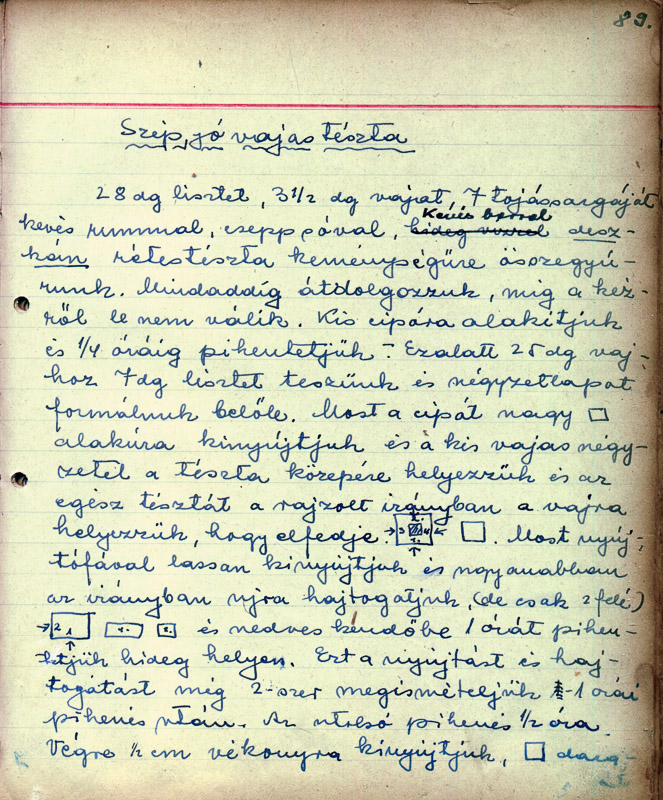 89.
Szép, jó vajas tészta
28 dg lisztet, 3 1/2 dg vajat, 7 tojássargáját
Kevés borral
kevés rummal, csepp sóval, hideg vizzel desz-
kán rétestészta keménységűre összegyú-
runk. Mindaddig átdolgozzuk, mig a kéz-
ről le nem válik. Kis cipóra alakítjuk
és 1/4 óráig pihentetjük - Ezalatt 25 dg vaj-
hoz 7 dg lisztet teszünk és négyzetlapot
formálunk belőle. Most a cipót nagy □
alakúra kinyújtjuk és a kis vajas négy-
zetet a tészta közepére helyezzük és az
egész tésztát a rajzolt irányban a vajra
helyezzük, hogy elfedje. 3 4 1. □. Most nyúj-
tófával lassan kinyújtjuk és ugyanabban
az irányban ujra hajtogatjuk, (de csak 2 felé)
2 1 és nedves kendőbe 1 órát pihen-
tetjük hideg helyen. Ezt a nyújtást és haj-
togatást még 2-szer megismételjük -1 órai
pihenés után. Az utolsó pihenés 1/2 óra.
Végre 1/2 cm vékonyra kinyújtjuk, □ dara-